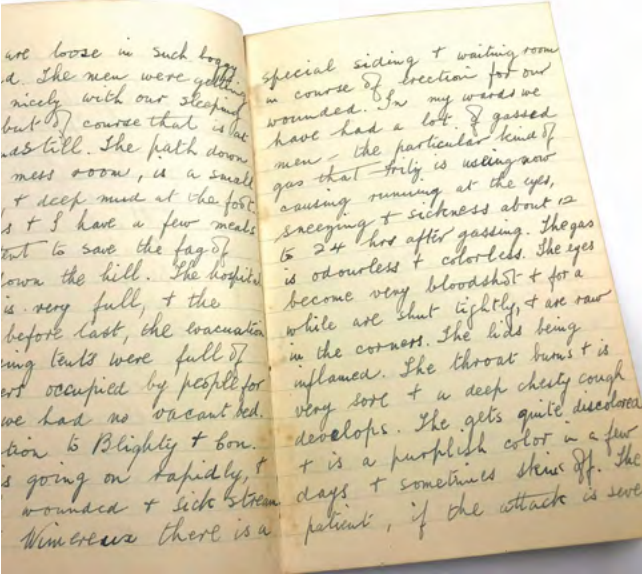 are loose in such boggy
d. The men were getting
nicely with our sleeping
but of course that is at
ndstill. The path down
mess room, is a small
, + deep mud at the foot.
s + I have a few meals
tent to save the fag of
down the hill. The hospital
is very full, + the
before last, the evacuation
ing tents were full of
ers occupied by people for
we had no vacant bed.
tion to Blighty + Con.
s going on rapidly, +
wounded + sick stream
Wimereux there is a
special siding + waiting room
in course of erection for our
wounded. In my wards we
have had a lot of gassed
men – the particular kind of
gas that Fritz is using now
causing running at the eyes,
sneezing + sickness about 12
to 24 hrs after gassing. The gas
is odourless + colorless. The eyes
become very bloodshot + for a
while are shut tightly, + are raw
in the corners. The lids being
inflamed. The throat burns + is
very sore + a deep chesty cough
develops. The gets quite discolored
+ is a purplish color in a few
days + sometimes skins off. The
patient, if the attack is seve